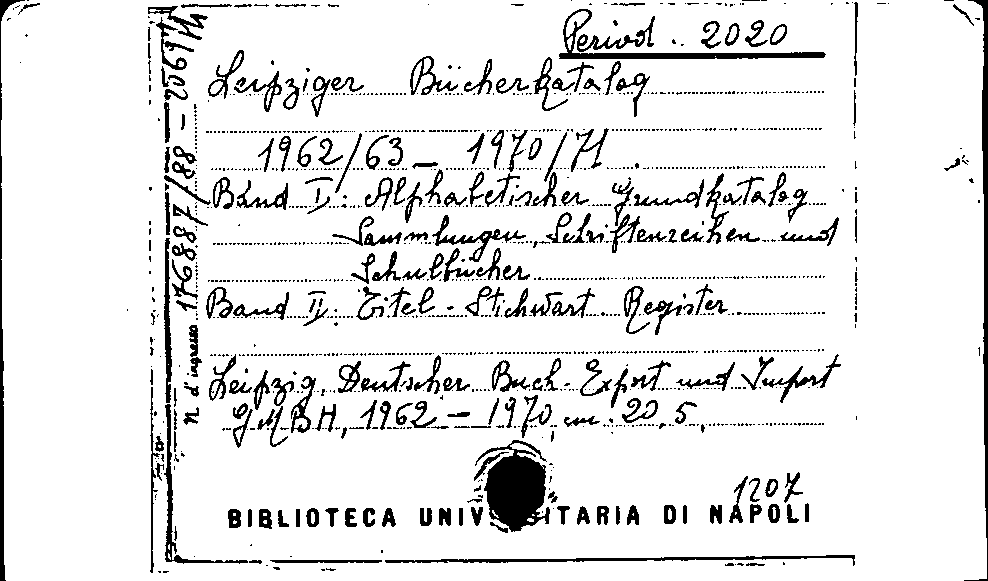 Period. 2020
Leipziger Bücherkatalog
1962/63 – 1970/71.
Band I: Alphabetischer Grundkatalog
Sammlungen, Schriftenreihen und
Schulbücher
Band II: Titel-Stichwort. Register.
Leipzig, Deutscher Buch-Export und Import
GMBH, 1962 – 1970, cm. 20,5.
1207
BIBLIOTECA UNIV SITARIA DI NAPOLI
N. d'ingresso 176887/88 – 205971